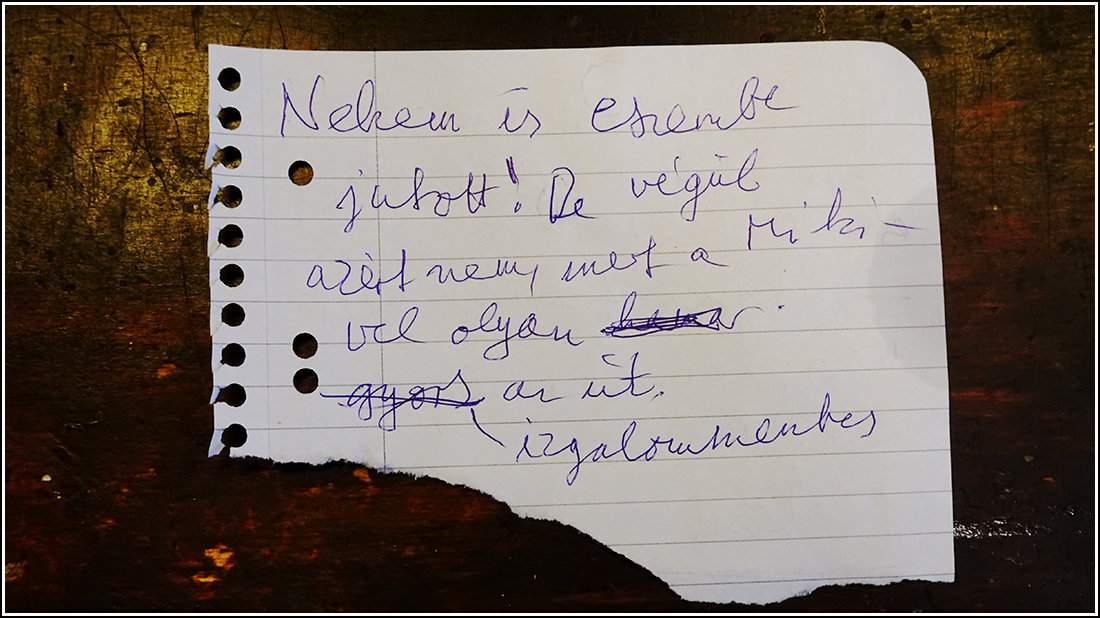 Nekem is eszembe
jutott! De végül
azért nem, mert a Miki-
vel olyan
gyors az út.
izgalommentes